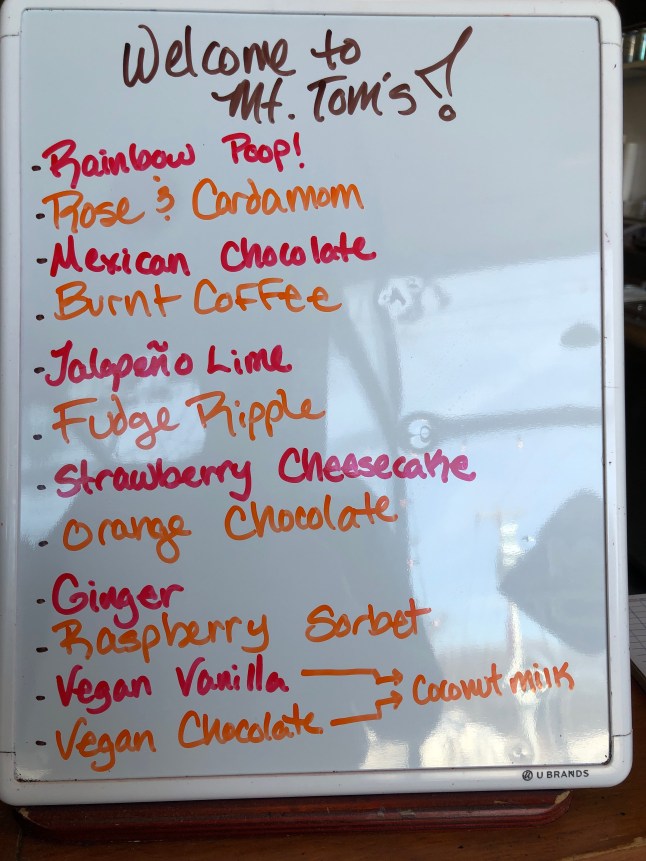 Welcome to
Mt. Tom's!
• Rainbow Poop!
• Rose & Cardamom
• Mexican Chocolate
• Burnt Coffee
• Jalapeño Lime
• Fudge Ripple
• Strawberry Cheesecake
• Orange Chocolate
• Ginger
• Raspberry Sorbet
• Vegan Vanilla → Coconut milk
• Vegan Chocolate →
U BRANDS